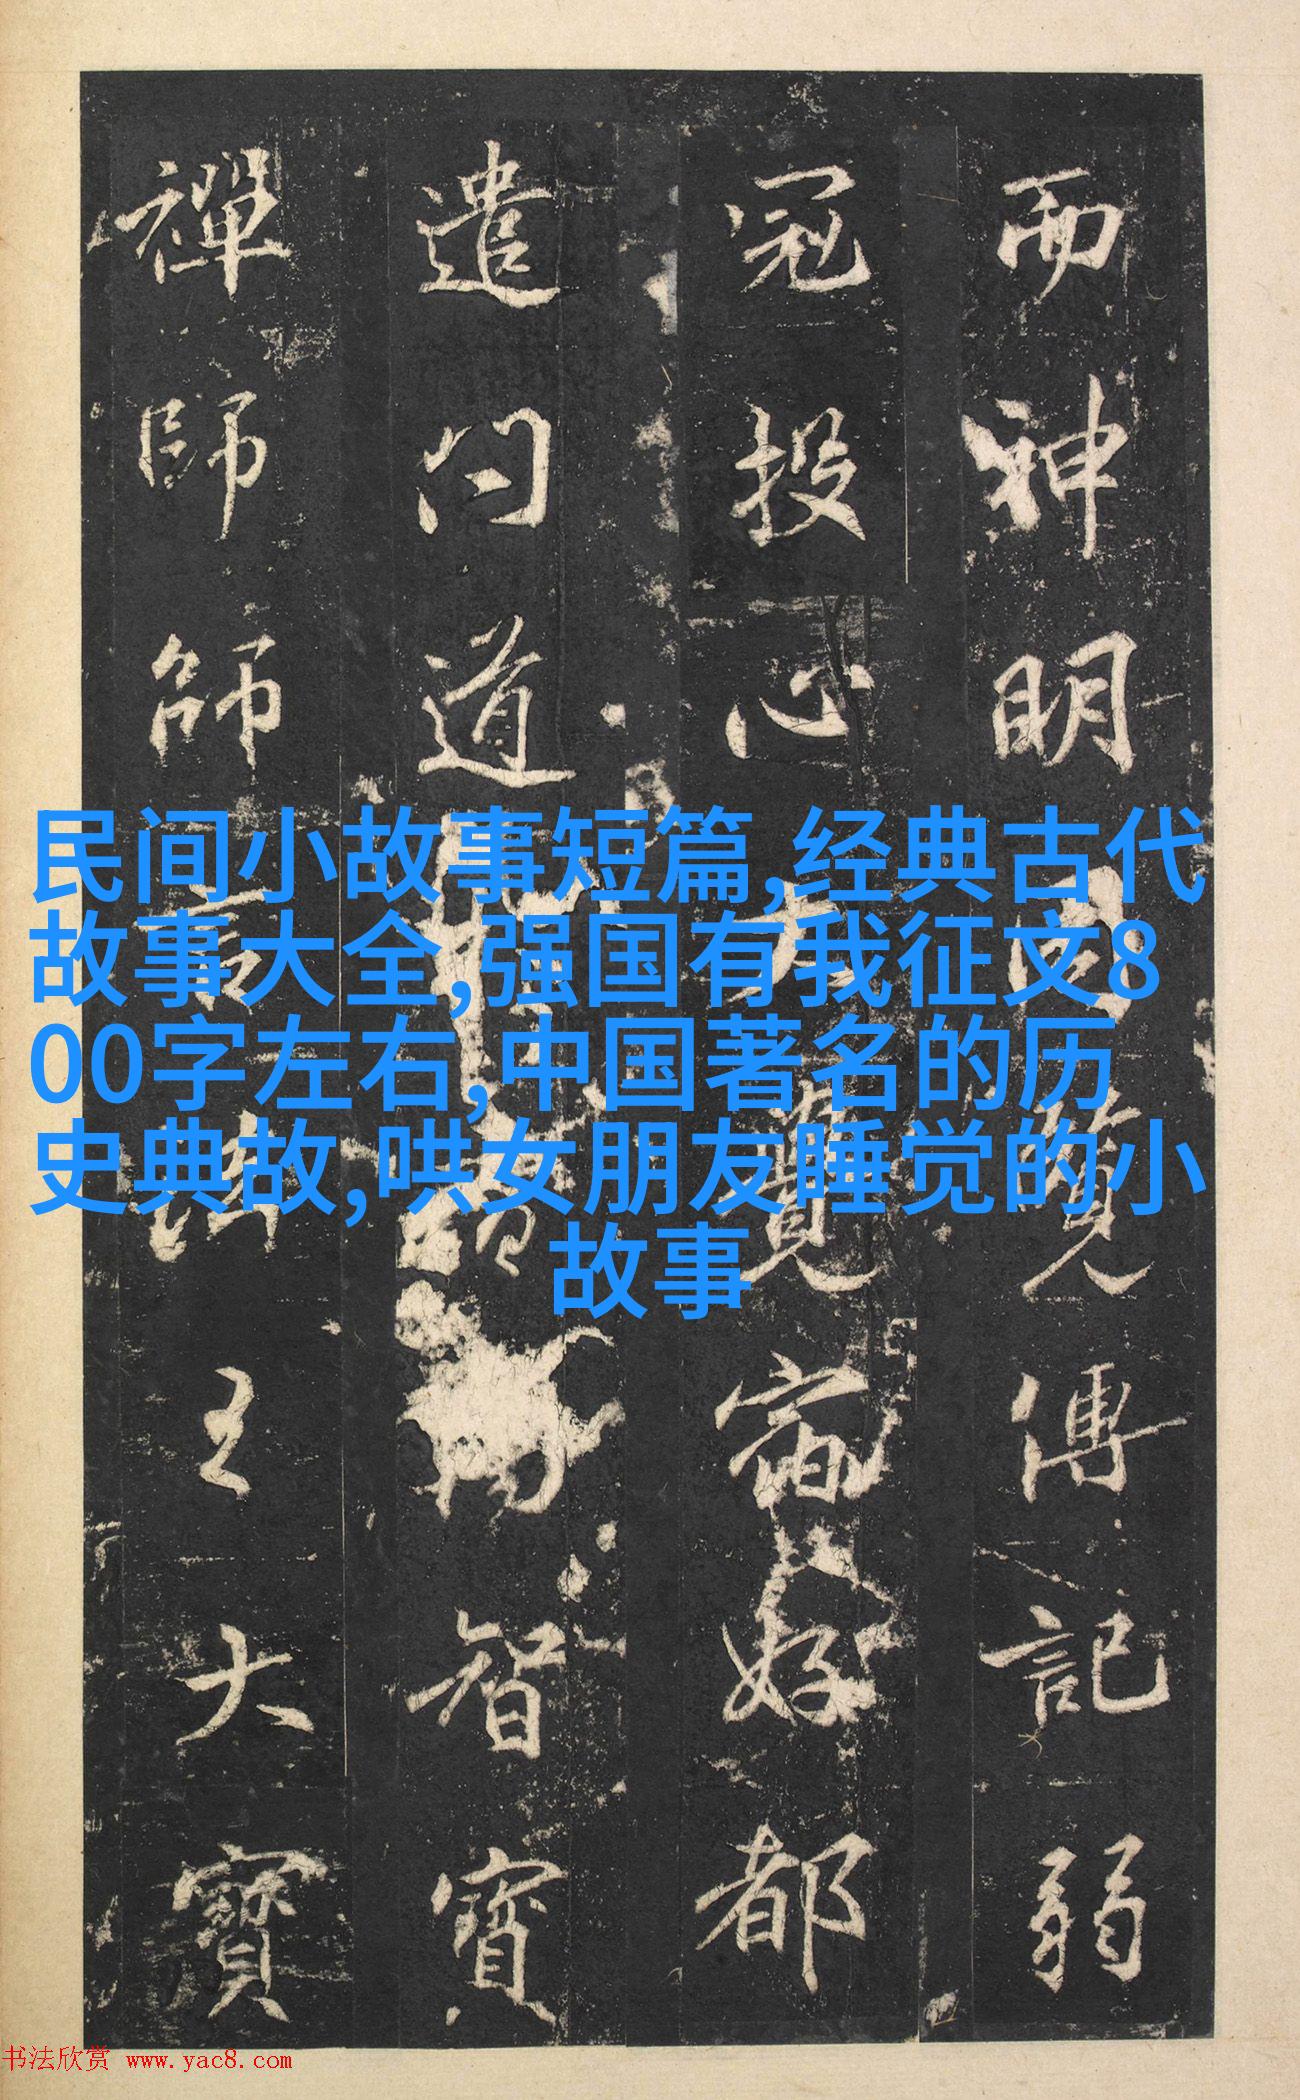 而神明覽傳記弱
冠投心好都
遣問道智寶
禪師師王大寶
民间小故事短篇,经典古代
故事大全,强国有我征文8
00字左右,中国著名的历
史典故,哄女朋友睡觉的小
故事
书法欣赏 www.yac8.com